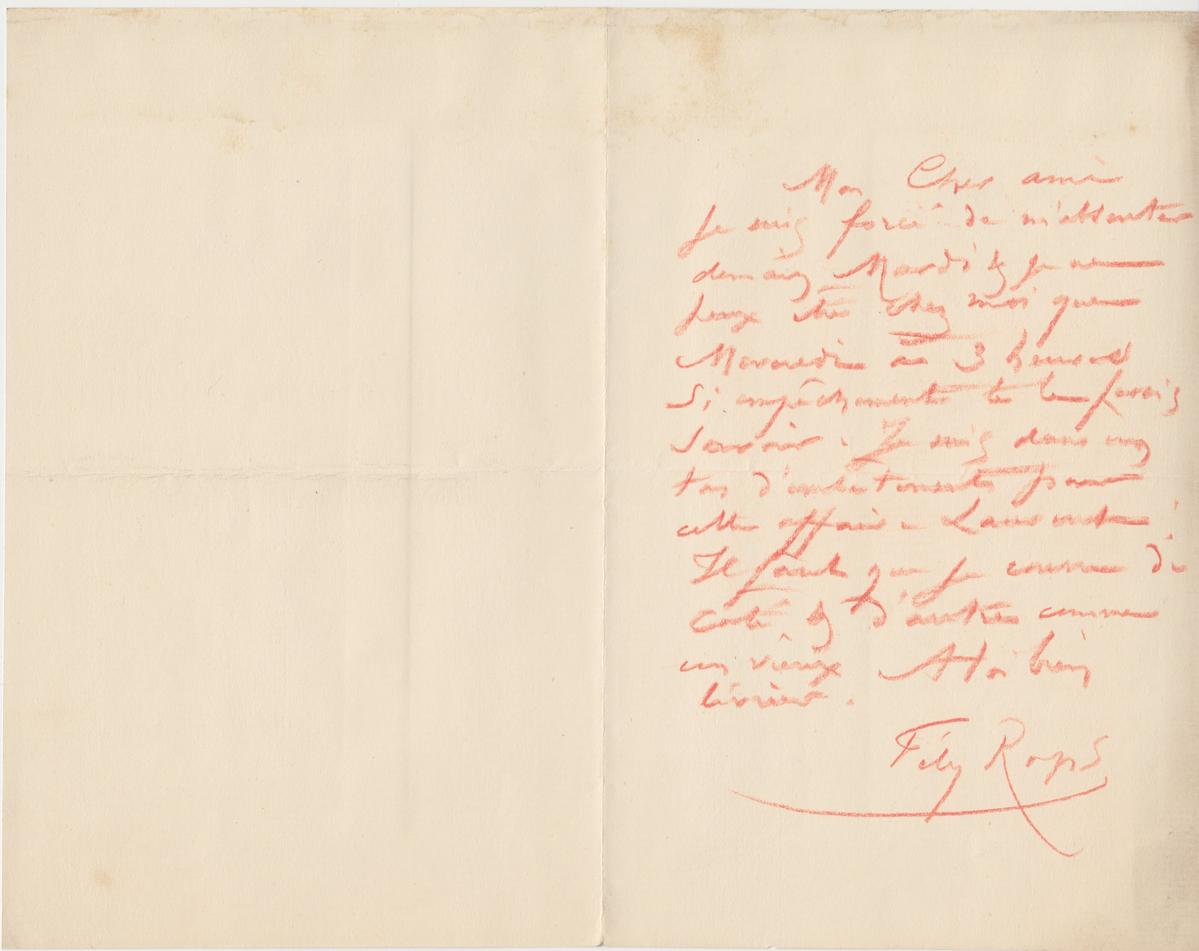 Mon Cher ami
Je suis forcé de m'absenter
demain Mardi & je ne
peux être chez moi que
Mercredi à 3 heures
Si empêchements te le ferais
savoir. Je suis dans un
tas d'embêtements pour
cette affaire
Il faut que je courre de
côté & d'autres comme
un vieux A toi bien
lévrier.
Fély Rops